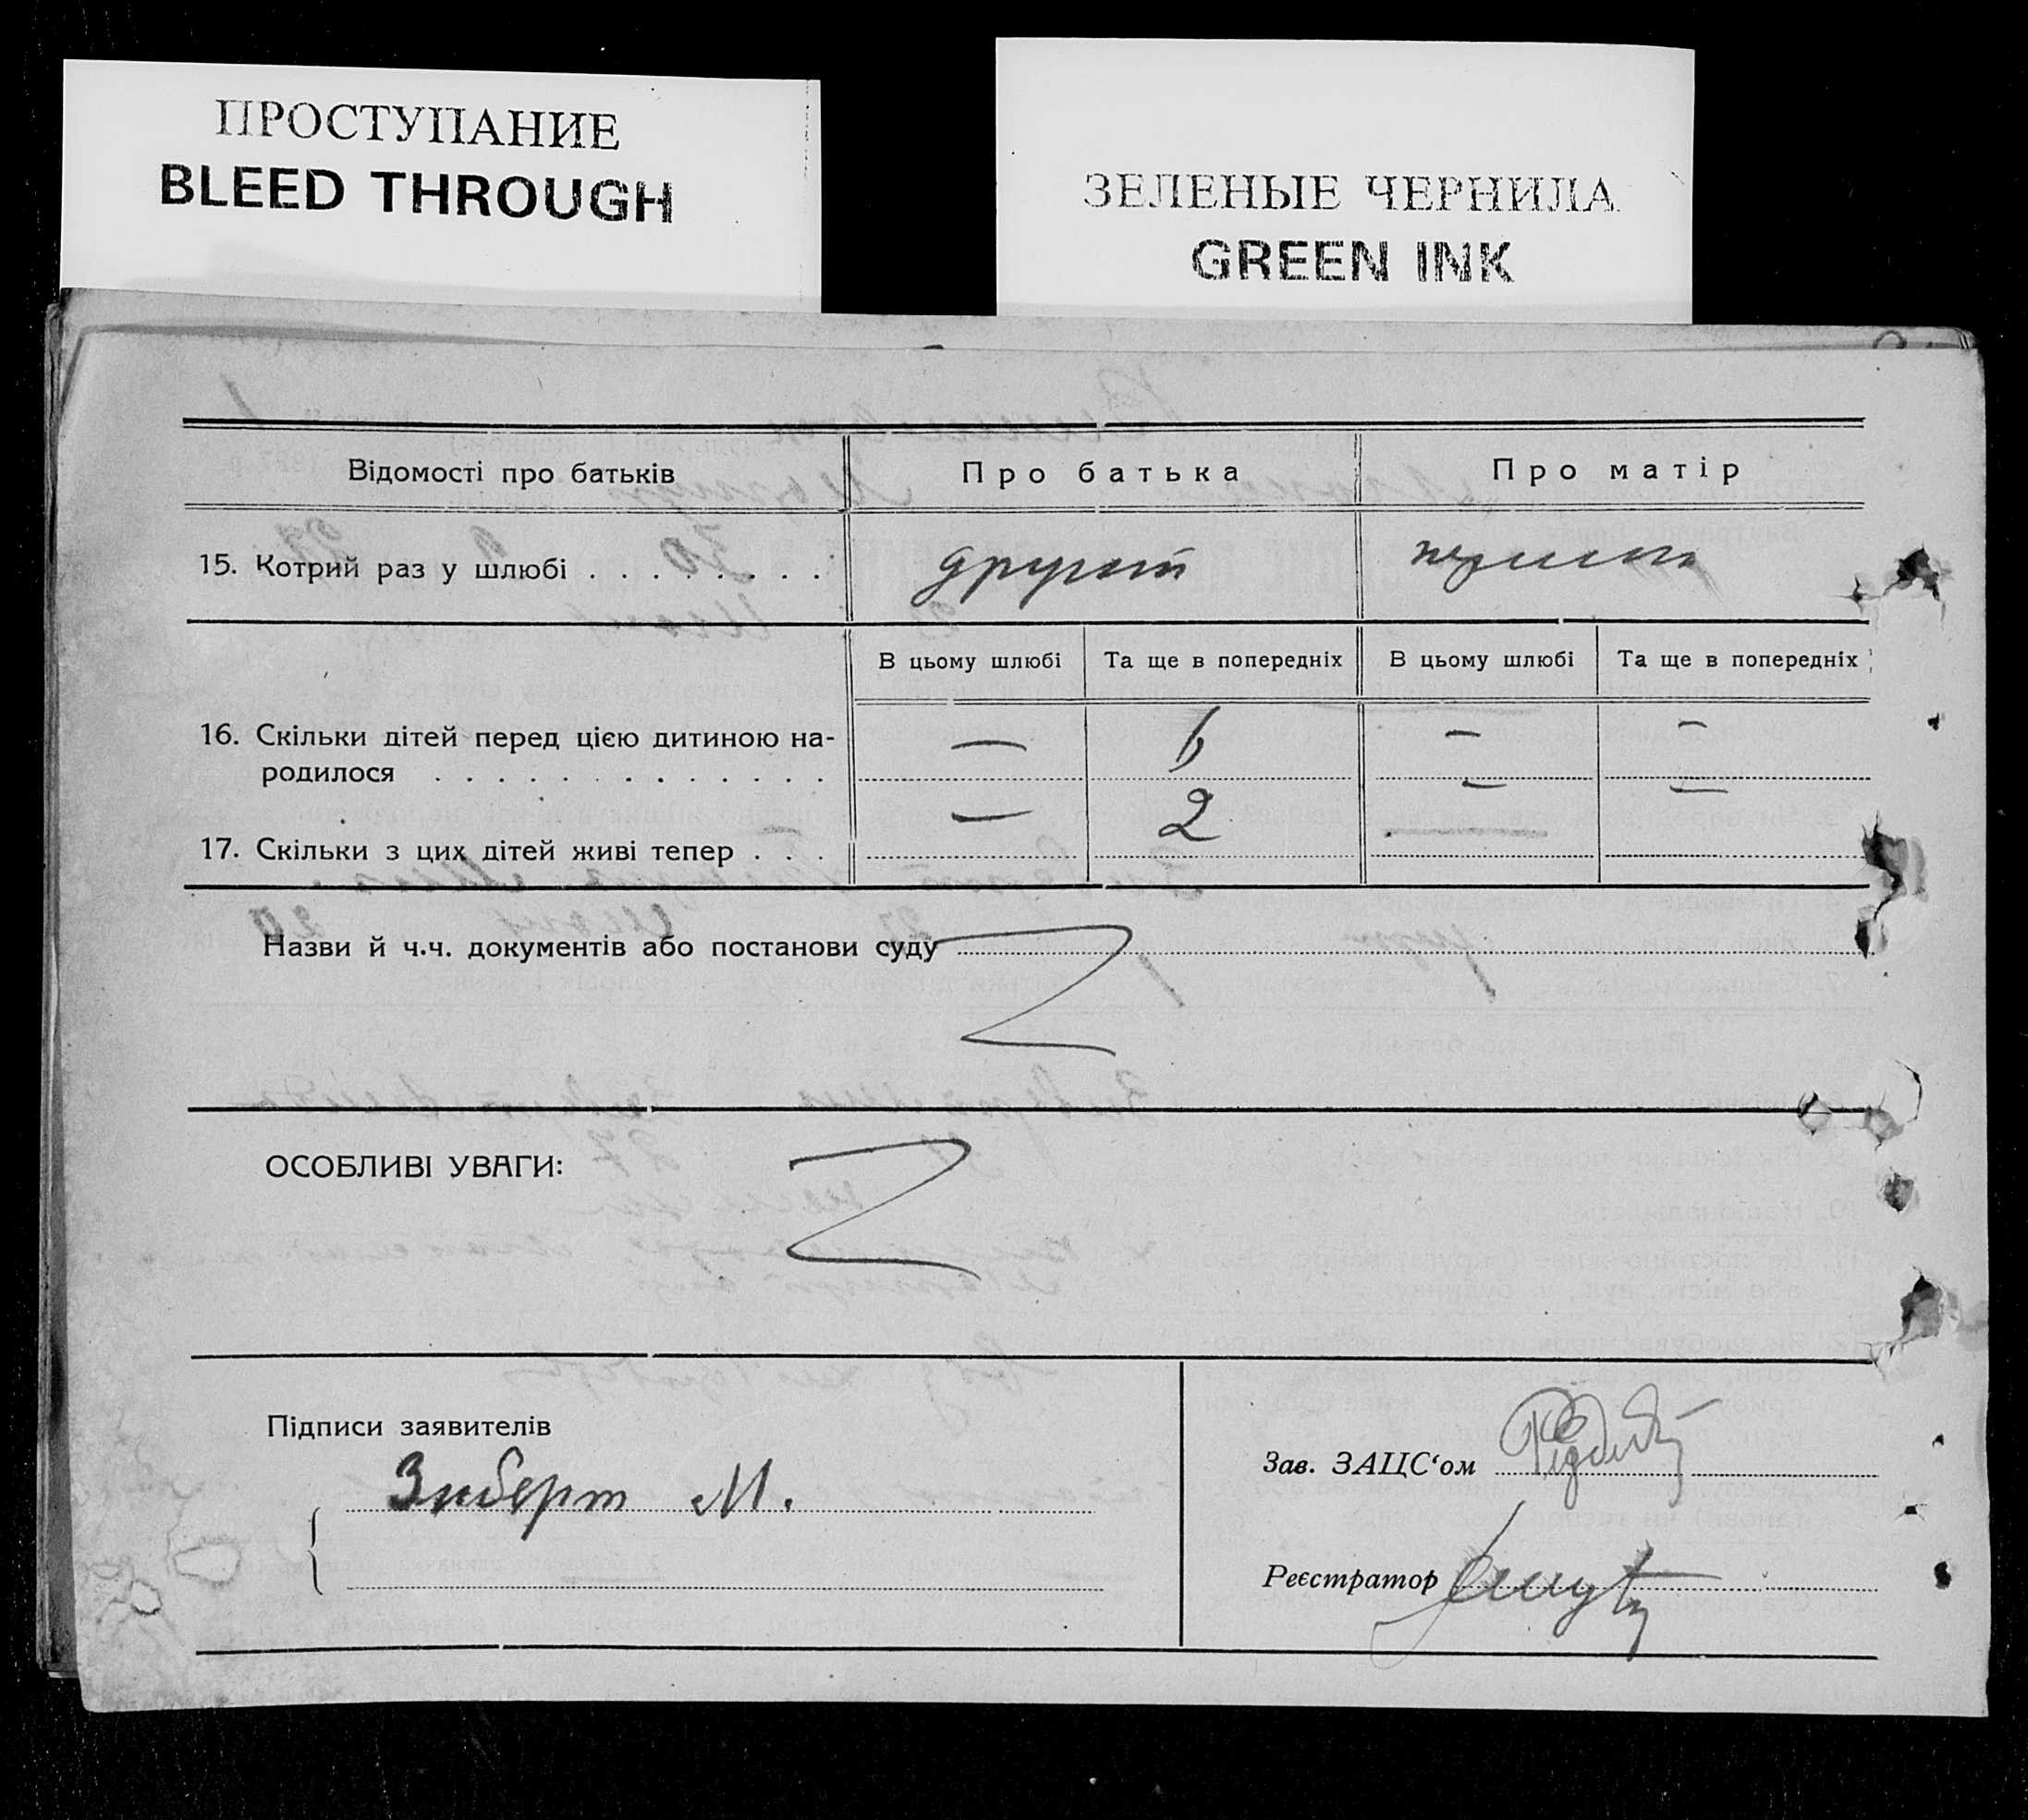 ПРОСТУПАНИЕ
BLEED THROUGH
ЗЕЛЕНЫЕ ЧЕРНИЛА
GREEN INK
Відомості про батьків Про батька Про матір
15. Котрий раз у шлюбі . . . . . . . . другий
В цьому шлюбі Та ще в попередніх В цьому шлюбі Та ще в попередніх
16. Скільки дітей перед цією дитиною на- — 6 — —
родилося . . . . . . . . . . . . . — —
17. Скільки з цих дітей живі тепер . . . — 2
Назви й ч.ч. документів або постанови суду
ОСОБЛИВІ УВАГИ:
Підписи заявителів
Зиберт М.
Зав. ЗАЦС‘ом
Реєстратор